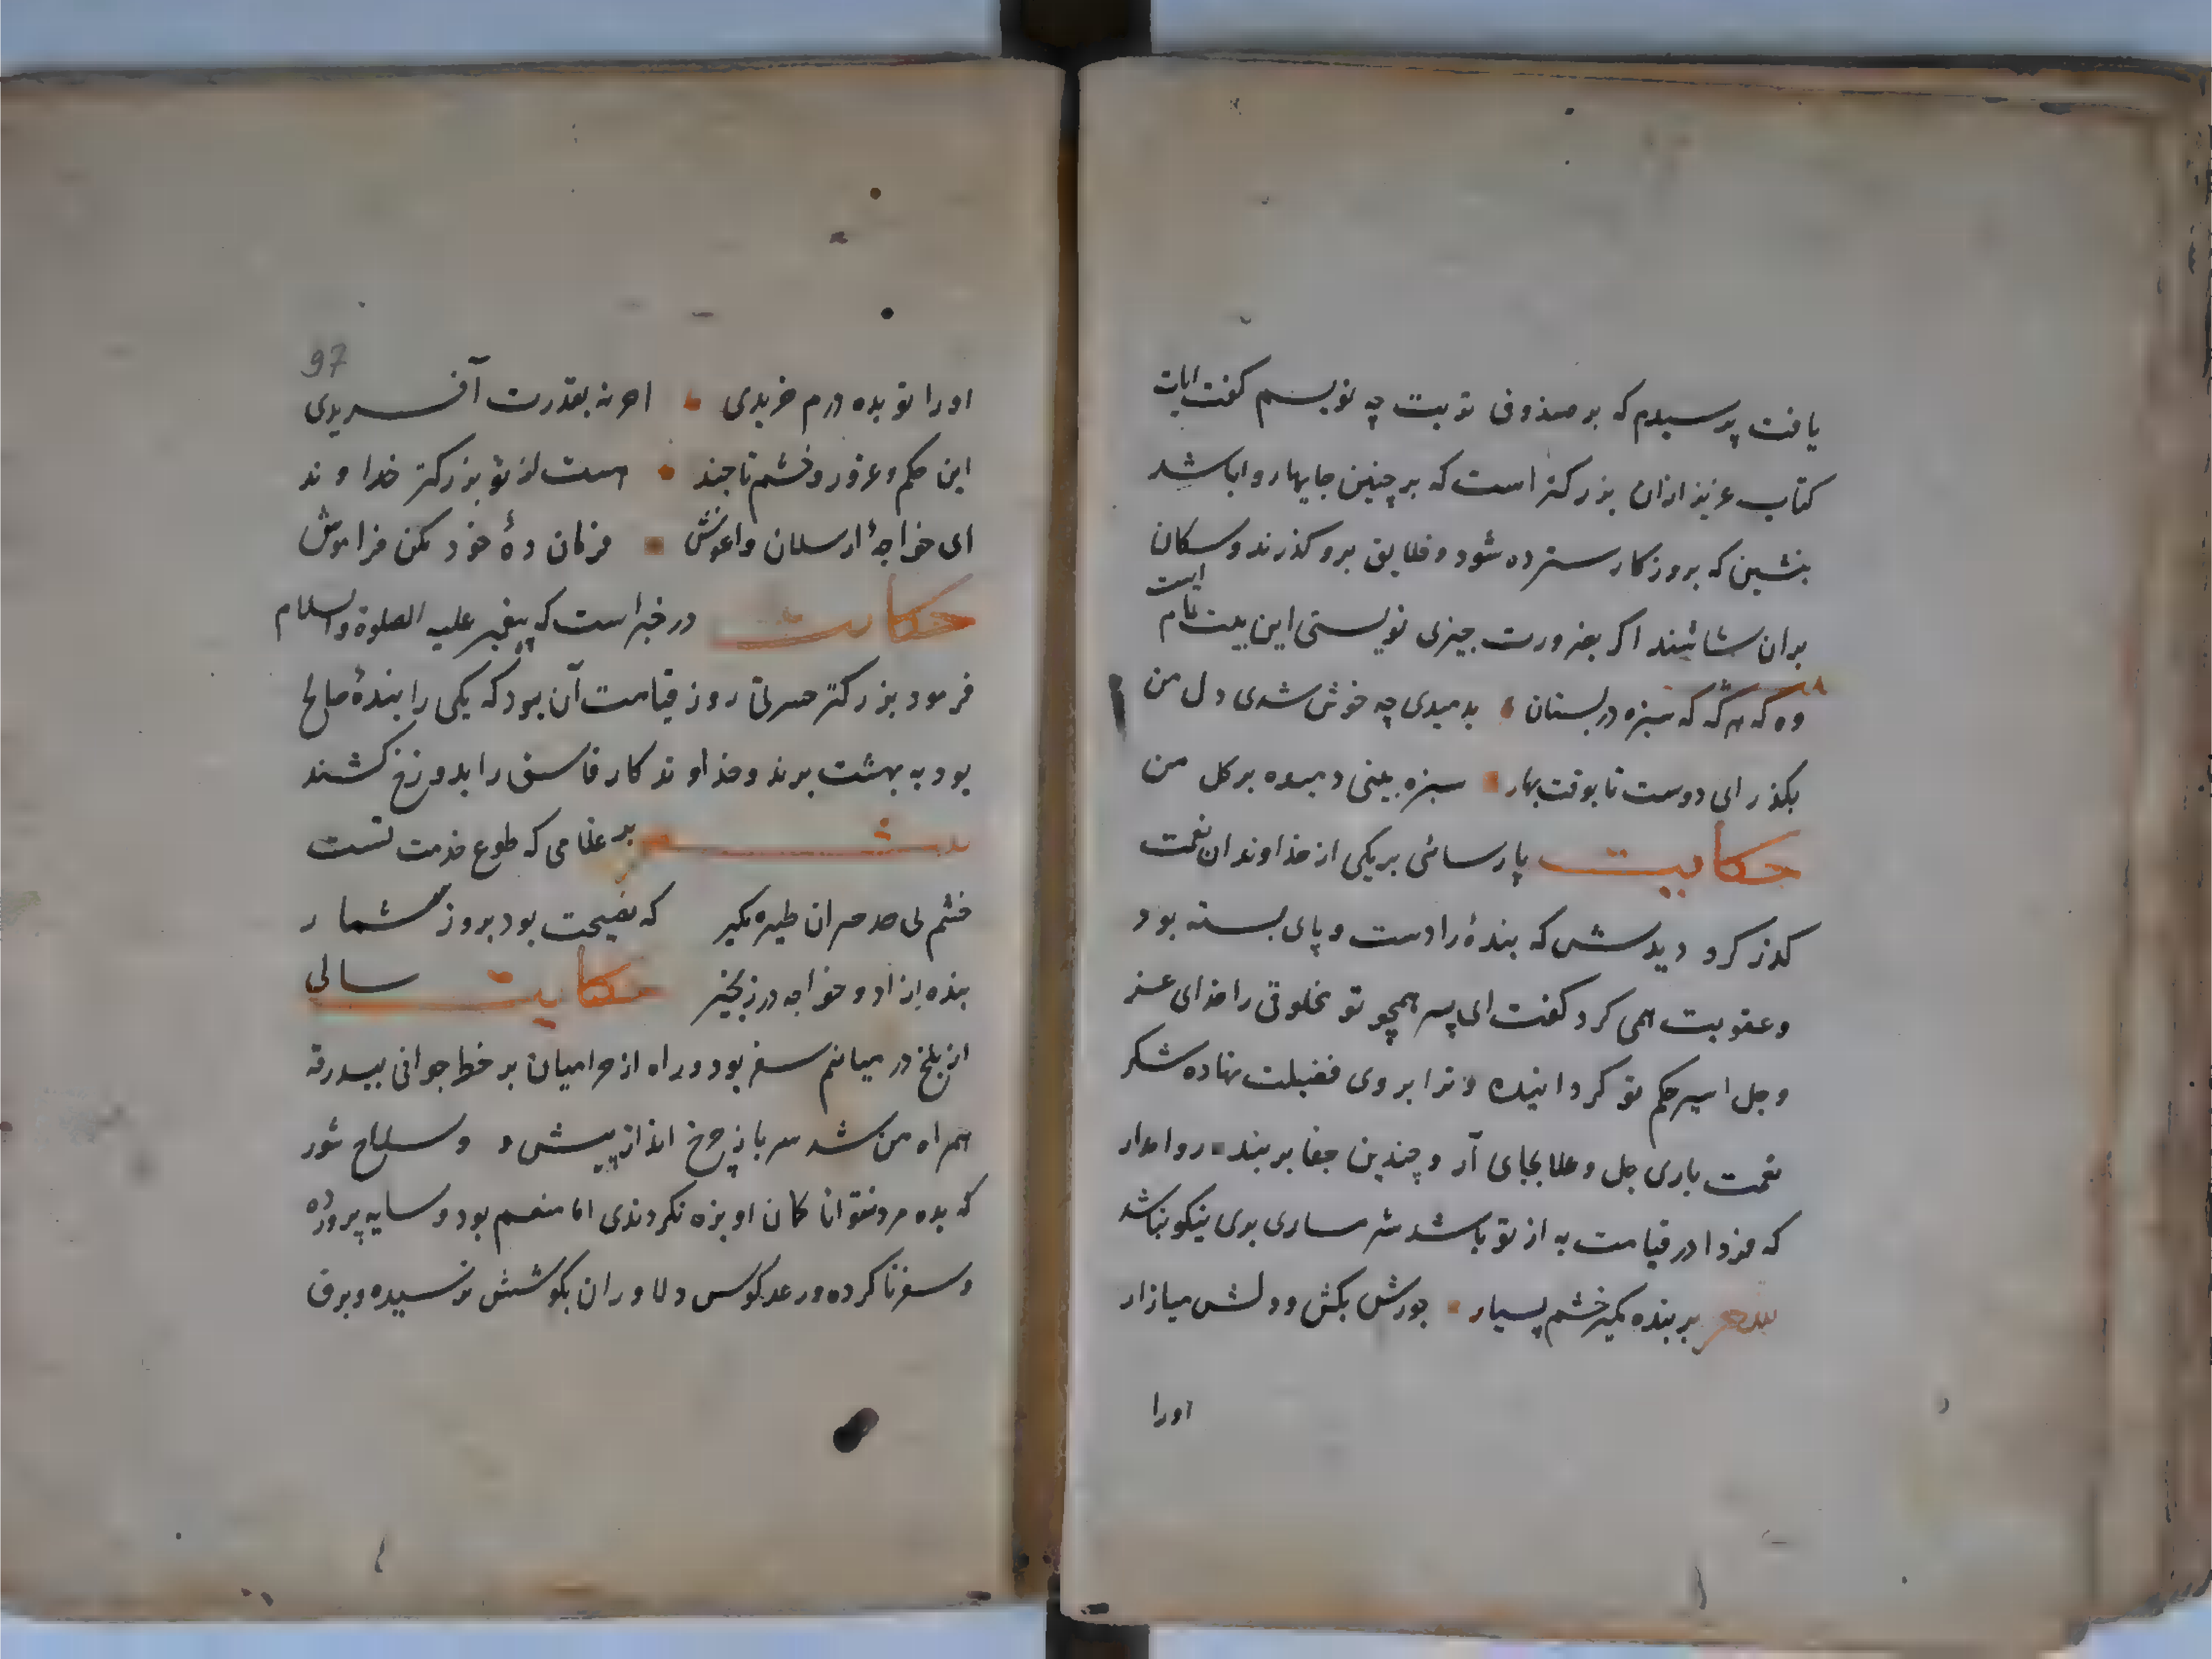 یافت پرسیدم که بر صندوق تربت چه نویسم گفت ایات
کتاب عزیز ازان بزرکتر است که بر چنین جایها روا باشد
نبشتین که بروزکار سترده شود و خلایق برو کذرند و سکان
بران شاشند اکر بضرورت چیزی نویستی این بیت تمام است
وه که هرکه که سبزه در بستان بدمیدی چه خوش شدی دل من
بکذر ای دوست تا بوقت بهار سبزه بینی دمیده بر کل من
حکایت پارسائی بر یکی از خداوندان نعمت
کذر کرد دیدش که بندهٔ را دست و پای بسته بود
و عقوبت همی کرد کفت ای پسر همچو تو مخلوقی را خدای عز
و جل اسیر حکم تو کردانیده و ترا بروی فضیلت نهاده شکر
نعمت باری جل و علا بجای آر و چندین جفا بر بنده روا مدار
که فردا در قیامت به از تو باشد شرمساری بری نیکو نباشد
شعر بر بنده مکیر خشم بسیار جورش مکش و دلش میازار
اورا
97
اورا تو بده درم خریدی اخر نه بقدرت آفریدی
این حکم و غرور و خشم تا چند هست از تو بزرکتر خداوند
ای خواجهٔ ارسلان و اغوش فرمان دهٔ خود مکن فراموش
حکایت در خبر است که پیغمبر علیه الصلوة والسلام
فرمود بزرکتر حسرتی روز قیامت آن بود که یکی را بندهٔ صالح
بود به بهشت برند و خداوند کار فاسق را بدوزخ کشند
شعر بر غلامی که طوع خدمت تست
خشم بی حد مران طیره مکیر که فضیحت بود بروز شمار
بنده ازاد و خواجه در زنجیر حکایت سالی
از بلخ در میانم سفر بود و راه از حرامیان بر خطر جوانی ببدرقه
همراه من شد سرباز چرخ انداز پیش و سلاح شور
که بده مرد توانا کمان او بزه نکردندی اما منعم بود و سایه پرورده
و سفر ناکرده و رعد کوس دلاوران بکوشش نرسیده و برق